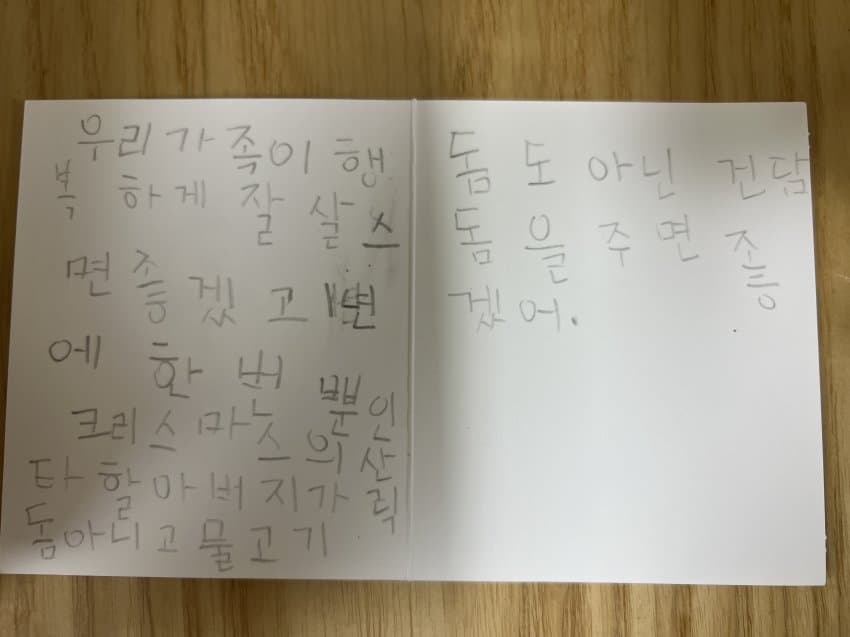 우리가족이 행
복 하게 잘 살 스
면 좋겠고 1년
에 한 번 뿐인
크리스마스의 산
타 할아버지가 릭
돔아니고 물고기
돔 도 아닌 건담
돔 을 주면 좋
겠어.